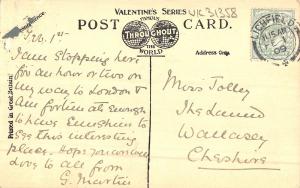 VALENTINE'S SERIES
FAMOUS
POST CARD.
THROUGHOUT
THE
WORLD
Address Only.
Printed in Great Britain
UK31358
LICHFIELD
09
Feb. 1st
I am stopping here
for an hour or two on
my way to London &
am fortunate enough
to have sunshine to
see this interesting
place. Hope you
love to all from
G. Martin
Miss Tolley
The Laund
Wallasey
Cheshire